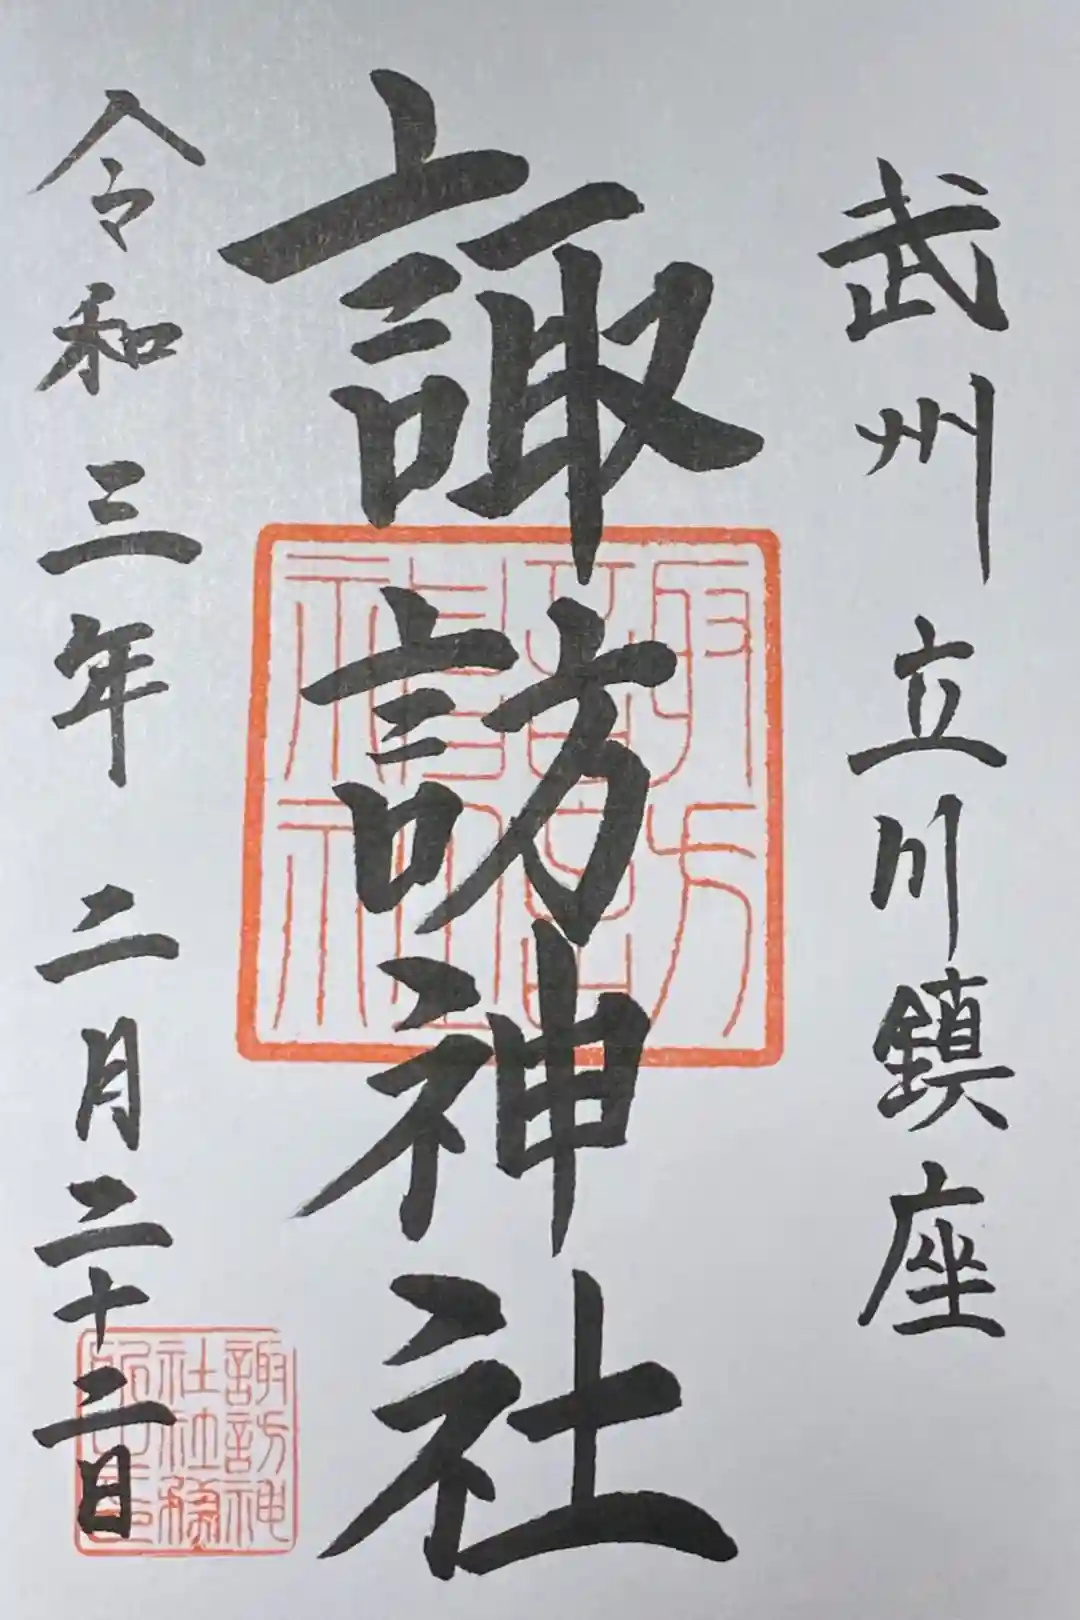 武州 立川鎮座
諏訪神社
令和三年 二月二十二日
諏訪
神社
諏訪神
社社務
所之印